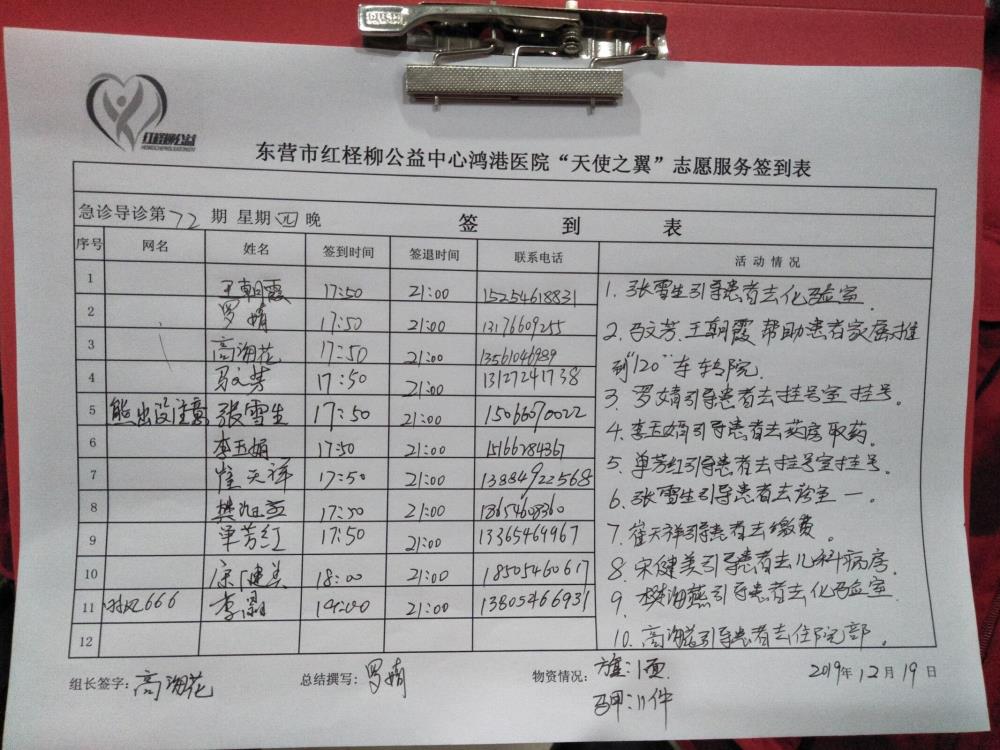 红柽柳公益
东营市红柽柳公益中心鸿港医院“天使之翼”志愿服务签到表
急诊导诊第72期 星期四晚 签到表
序号 网名 姓名 签到时间 签退时间 联系电话 活动情况
1 王朝霞 17:50 21:00 15254618831
2 罗婧 17:50 21:00 13176609255
3 高海花 17:50 21:00 13561046989
4 马文芳 17:50 21:00 13127241738
5 熊出没注意 张雪生 17:50 21:00 15066070022
6 李玉娟 17:50 21:00 15166284367
7 崔天祥 17:50 21:00 13884922568
8 樊 17:50 21:00 13654608360
9 单芳红 17:50 21:00 13365469967
10 宋健美 18:00 21:00 18505460617
11 666 李 21:00 13805466931
12
1. 张雪生引导患者去化验室.
2. 马文芳.王朝霞帮助患者家属推
到“120”车转院.
3. 罗婧引导患者去挂号室挂号。
4. 李玉娟引导患者去药房取药。
5. 单芳红引导患者去挂号室挂号.
6. 张雪生引导患者去诊室一。
7. 崔天祥引导患者去缴费。
8. 宋健美引导患者去儿科病房.
9. 樊海燕引导患者去化验室
10. 高海花引导患者去住院部.
组长签字：高海花 总结撰写：罗婧 物资情况： :1面 2019年12月19日
马甲:11件